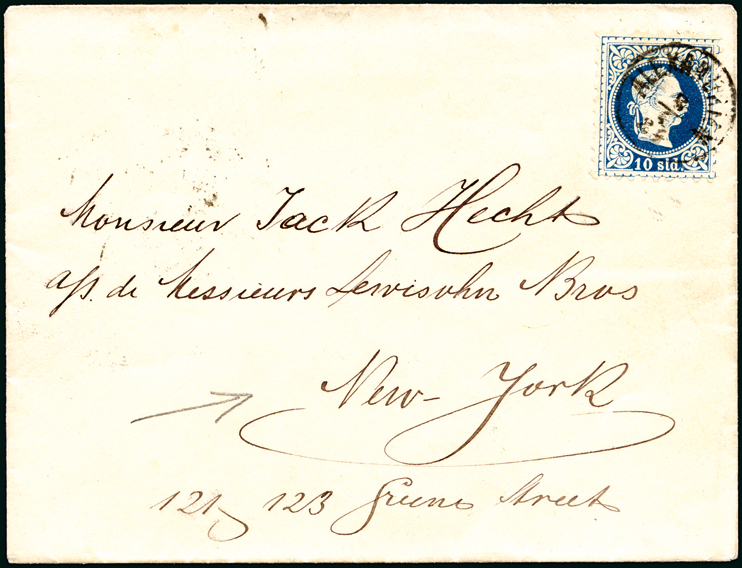 ALEXANDRIEN
10 sld.
Monsieur Jack Hecht
a/s. de Messieurs Lewisohn Bros
New-York
121, 123 Greene Street